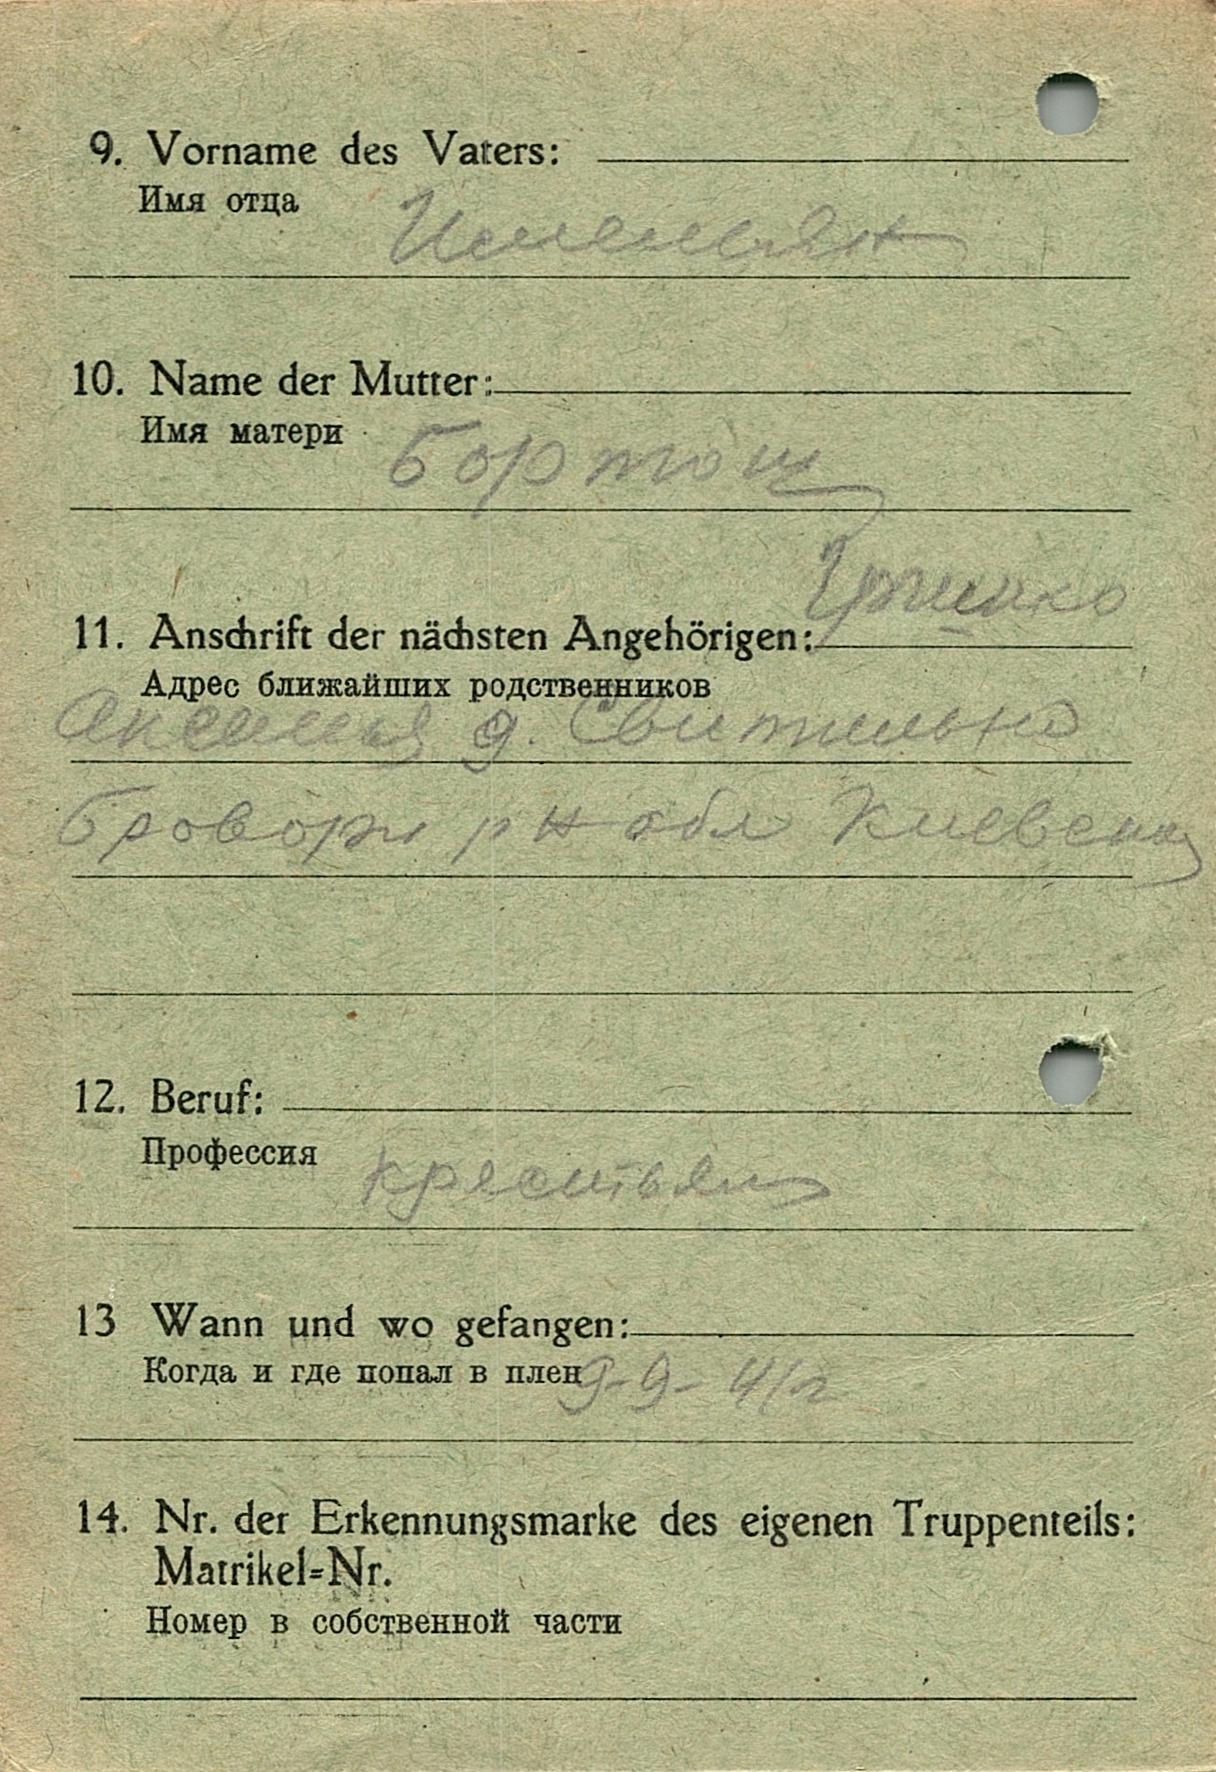 9. Vorname des Vaters:
Имя отца
10. Name der Mutter:
Имя матери
Бортош
11. Anschrift der nächsten Angehörigen:
Адрес ближайших родственников
д. Свитильно
Бровори р н обл Киевская
12. Beruf:
Профессия
крестьян
13 Wann und wo gefangen:
Когда и где попал в плен 9-9-41 г
14. Nr. der Erkennungsmarke des eigenen Truppenteils:
Matrikel=Nr.
Номер в собственной части